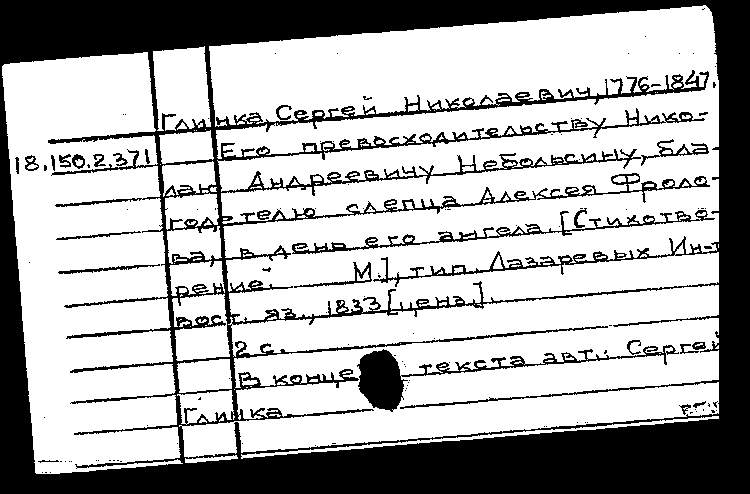 Глинка, Сергей Николаевич, 1776-1847.
18.150.2.371 Его превосходительству Нико-
лаю Андреевичу Небольсину, бла-
годетелю слепца Алексея Фроло-
ва, в день его ангела. [Стихотво-
рение. М.], тип. Лазаревых Ин-т
вост. яз., 1833 [ценз.].
2 с.
В конце текста авт.: Сергей
Глинка.